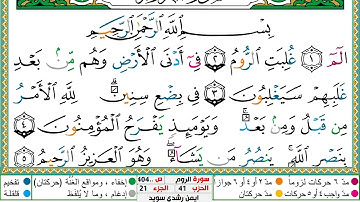 بِسْمِ ٱللَّهِ ٱلرَّحْمَٰنِ ٱلرَّحِيمِ
الٓمٓ ١ غُلِبَتِ ٱلرُّومُ ٢ فِىٓ أَدْنَى ٱلْأَرْضِ وَهُم مِّنۢ بَعْدِ
غَلَبِهِمْ سَيَغْلِبُونَ ٣ فِى بِضْعِ سِنِينَ ۗ لِلَّهِ ٱلْأَمْرُ
مِن قَبْلُ وَمِنۢ بَعْدُ ۚ وَيَوْمَئِذٍ يَفْرَحُ ٱلْمُؤْمِنُونَ ٤
بِنَصْرِ ٱللَّهِ ۚ يَنصُرُ مَن يَشَآءُ ۖ وَهُوَ ٱلْعَزِيزُ ٱلرَّحِيمُ ٥
مدّ ٦ حركات لزوماً مدّ ٢ أو ٤ أو ٦ جوازاً
سورة الروم ص ..404
الحزب 41 الجزء 21
ايمن رشدي سويد
إخفاء، ومواقع الغُنَّة (حركتان) تفخيم
إدغام، وما لا يُلفَظ قلقلة